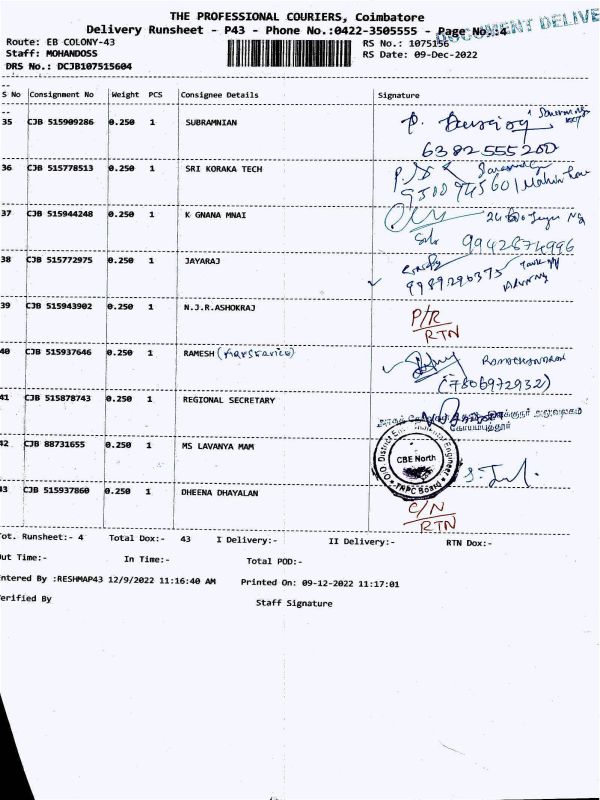 THE PROFESSIONAL COURIERS, Coimbatore
Delivery Runsheet - P43 - Phone No.:0422-3505555 - Page No.:4
DOCUMENT DELIVE
Route: EB COLONY-43
RS No.: 1075156
Staff: MOHANDOSS
RS Date: 09-Dec-2022
DRS No.: DCJB107515604
S No Consignment No Weight PCS Consignee Details Signature
35 CJB 515909286 0.250 1 SUBRAMNIAN
6382555200
36 CJB 515778513 0.250 1 SRI KORAKA TECH
37 CJB 515944248 0.250 1 K GNANA MNAI
9942874996
38 CJB 515772975 0.250 1 JAYARAJ
9989290375
39 CJB 515943902 0.250 1 N.J.R.ASHOKRAJ
P/R
RTN
40 CJB 515937646 0.250 1 RAMESH
RAMACHANDRAN
(7806972932)
41 CJB 515878743 0.250 1 REGIONAL SECRETARY
கோயம்புத்தூர்
42 CJB 88731655 0.250 1 MS LAVANYA MAM
CBE North
TNPC Board
43 CJB 515937860 0.250 1 DHEENA DHAYALAN
C/N
RTN
Tot. Runsheet:- 4 Total Dox:- 43 I Delivery:- II Delivery:- RTN Dox:-
Out Time:- In Time:- Total POD:-
Entered By :RESHMAP43 12/9/2022 11:16:40 AM Printed On: 09-12-2022 11:17:01
Verified By Staff Signature